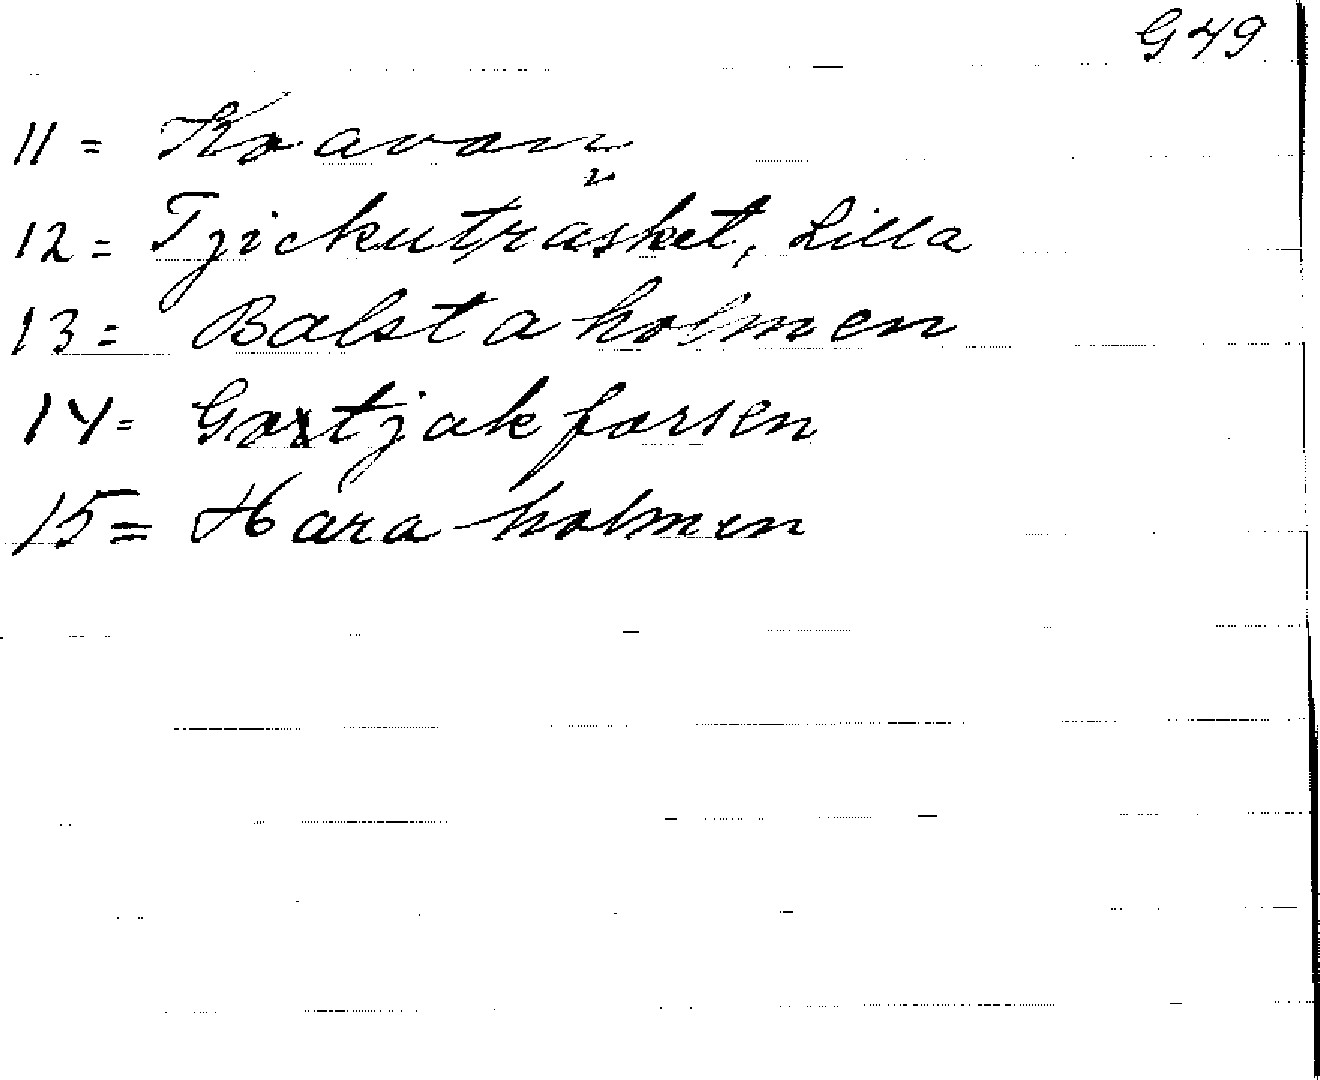 G49
11 = Kravan
12 = Tjickuträsket, Lilla
13 = Balstaholmen
14 = Gortjakforsen
15 = Haraholmen